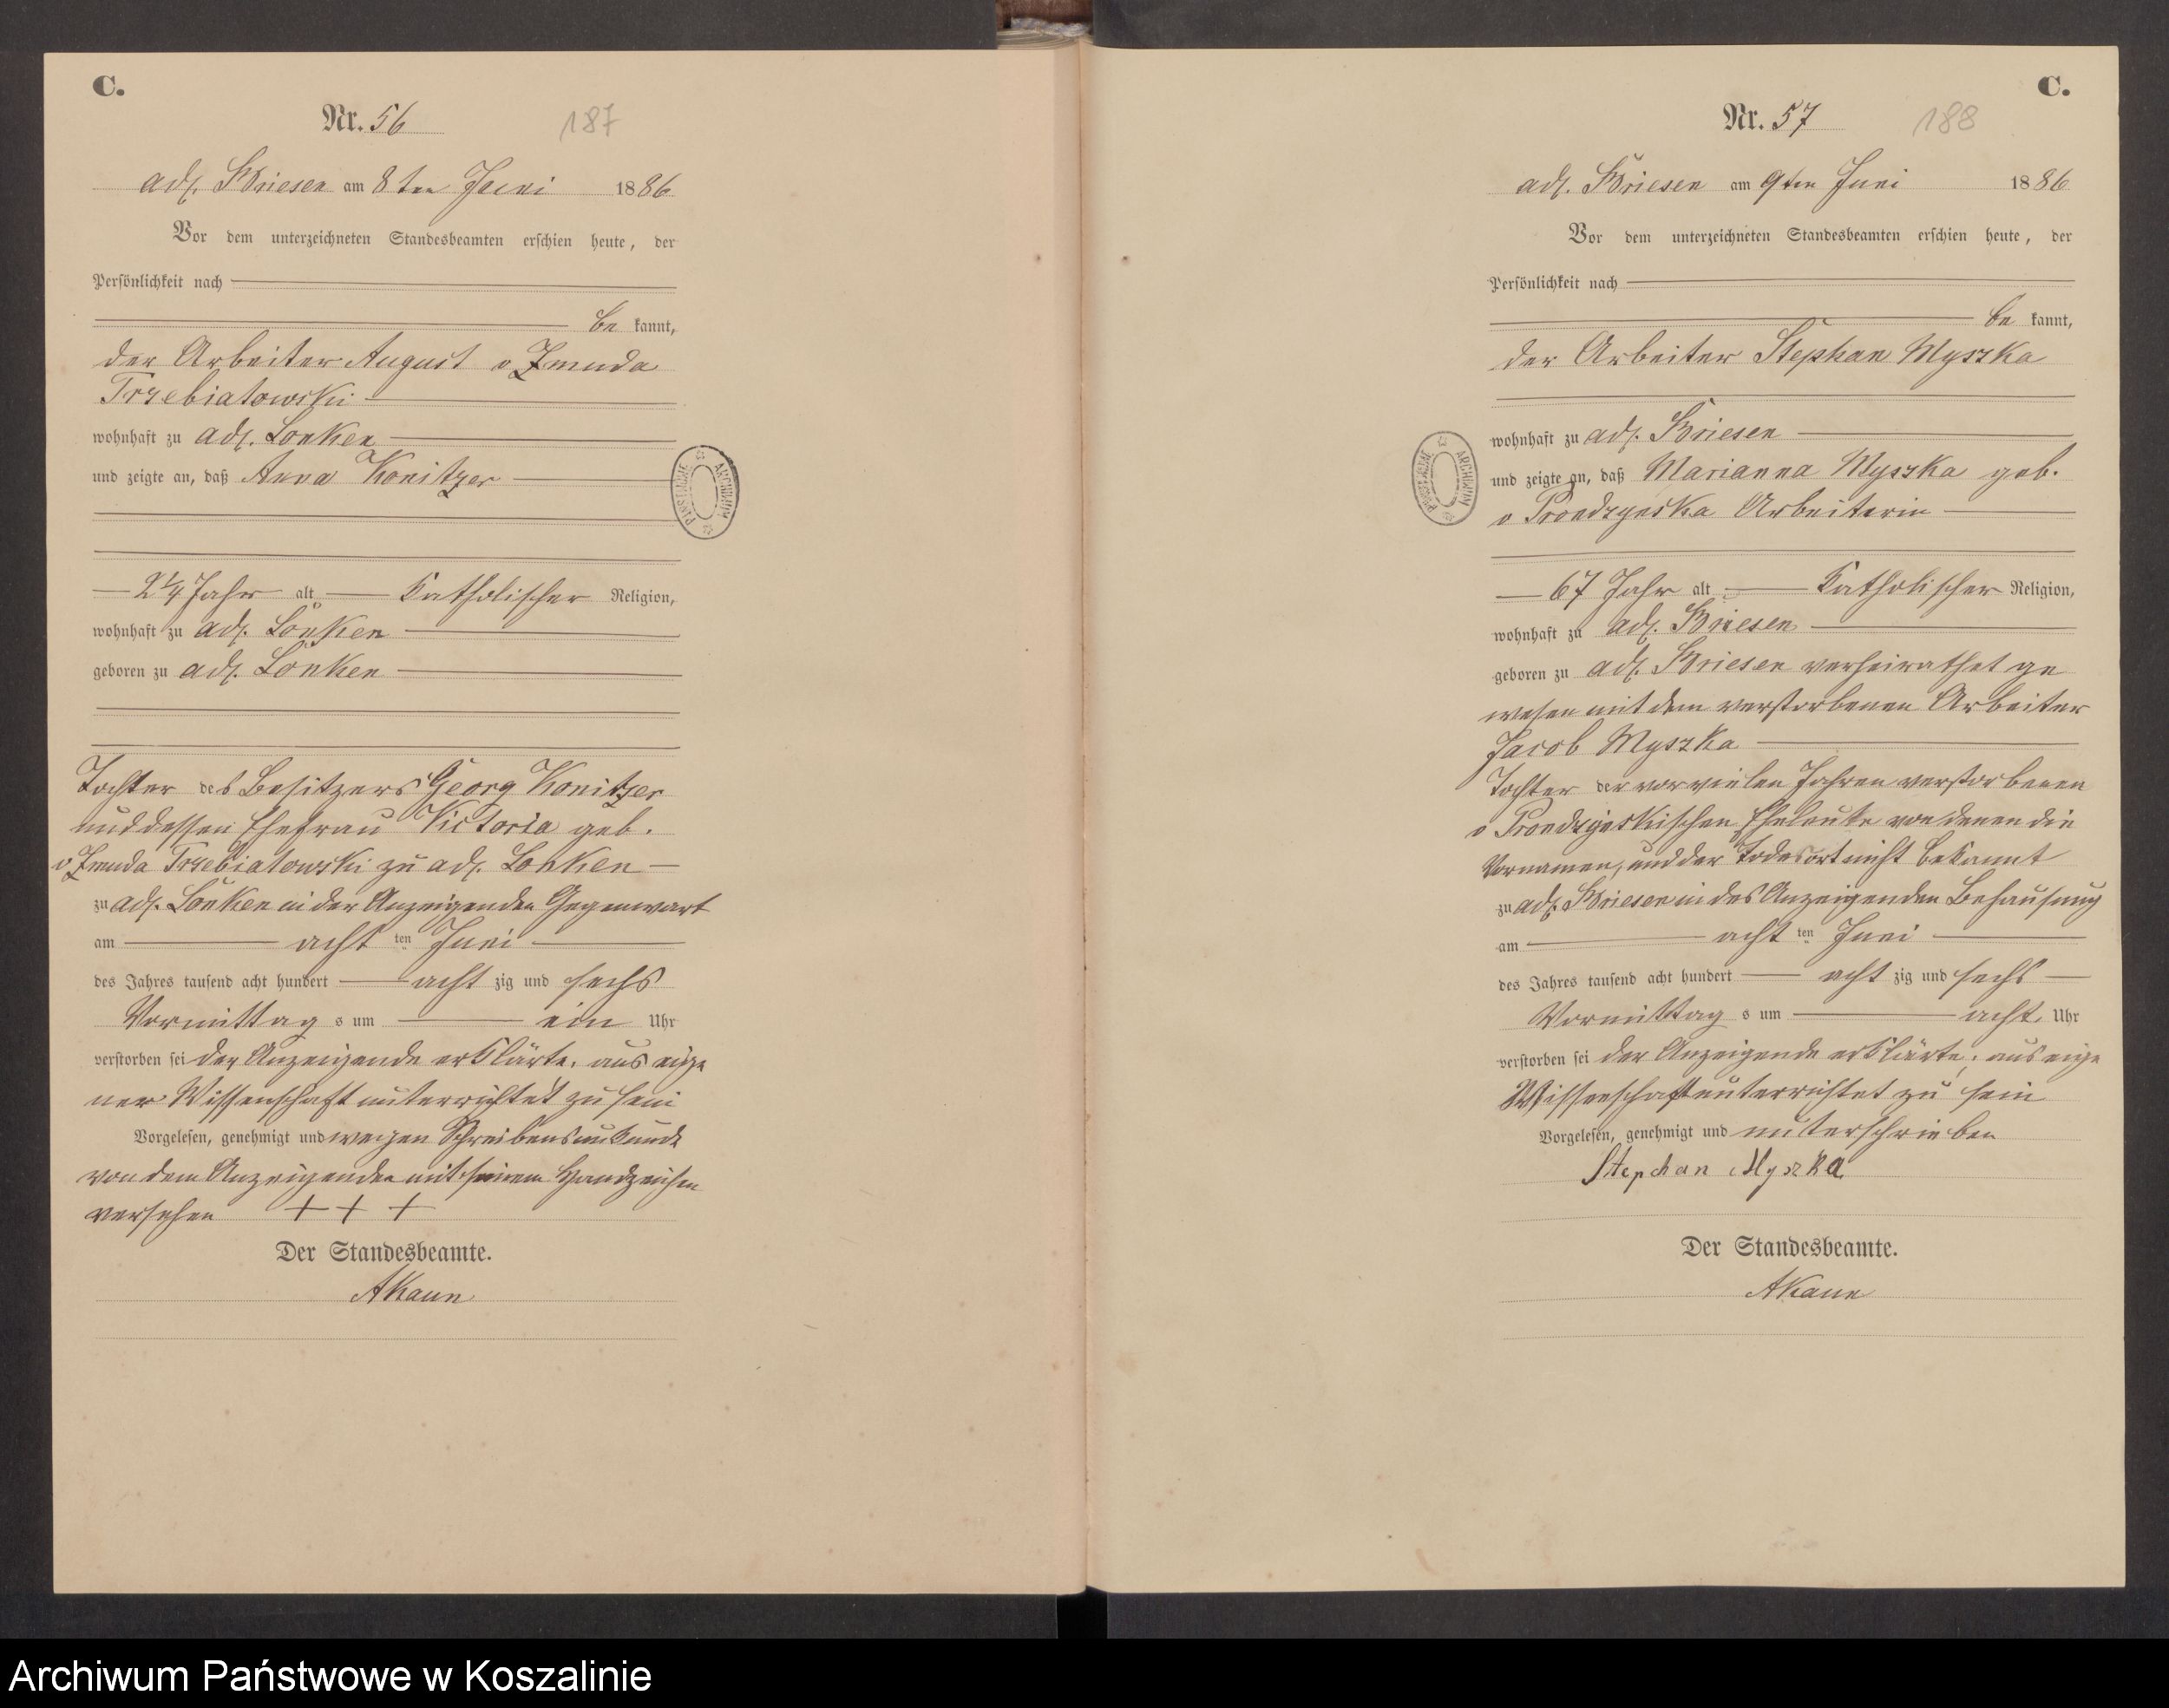 C.
Nr. 56
187
adl. Briesen am 8ten Juni 1886
Vor dem unterzeichneten Standesbeamten erschien heute, der
Persönlichkeit nach
be kannt,
der Arbeiter August v Zmuda
Trzebiatowski
wohnhaft zu adl. Lonken
und zeigte an, daß Anna Konitzer
2 1/4 Jahr alt Katholischer Religion,
wohnhaft zu adl. Lonken
geboren zu adl. Lonken
Tochter des Besitzers Georg Konitzer
und dessen Ehefrau Victoria geb.
v Zmuda Trzebiatowski zu adl. Lonken
zu adl. Lonken in der Anzeigenden Gegenwart
am acht ten Juni
des Jahres tausend acht hundert acht zig und sechs
Vormittag s um ein Uhr
verstorben sei der Anzeigende erklärte, aus eige
ner Wissenschaft unterrichtet zu sein
Vorgelesen, genehmigt und wegen Schreibensunkunde
von dem Anzeigenden mit seinem Handzeichen
versehen + + +
Der Standesbeamte.
AKaun
ARCHIWUM PAŃSTWOWE
C.
Nr. 57
188
adl. Briesen am 9ten Juni 1886
Vor dem unterzeichneten Standesbeamten erschien heute, der
Persönlichkeit nach
be kannt,
der Arbeiter Stephan Myszka
wohnhaft zu adl. Briesen
und zeigte an, daß Marianna Myszka geb.
v Prondzynska Arbeiterin
67 Jahr alt Katholischer Religion,
wohnhaft zu adl. Briesen
geboren zu adl. Briesen verheirathet ge
wesen mit dem verstorbenen Arbeiter
Jacob Myszka
Tochter der vor vielen Jahren verstorbenen
v Prondzynskischen Eheleute von denen die
Vornamen, und der Todesort nicht bekannt
zu adl. Briesen in des Anzeigenden Behausung
am acht ten Juni
des Jahres tausend acht hundert acht zig und sechs
Vormittag s um acht Uhr
verstorben sei der Anzeigende erklärte, aus eige
Wissenschaft unterrichtet zu sein
Vorgelesen, genehmigt und unterschrieben
Stephan Myszka
Der Standesbeamte.
AKaun
ARCHIWUM PAŃSTWOWE
Archiwum Państwowe w Koszalinie